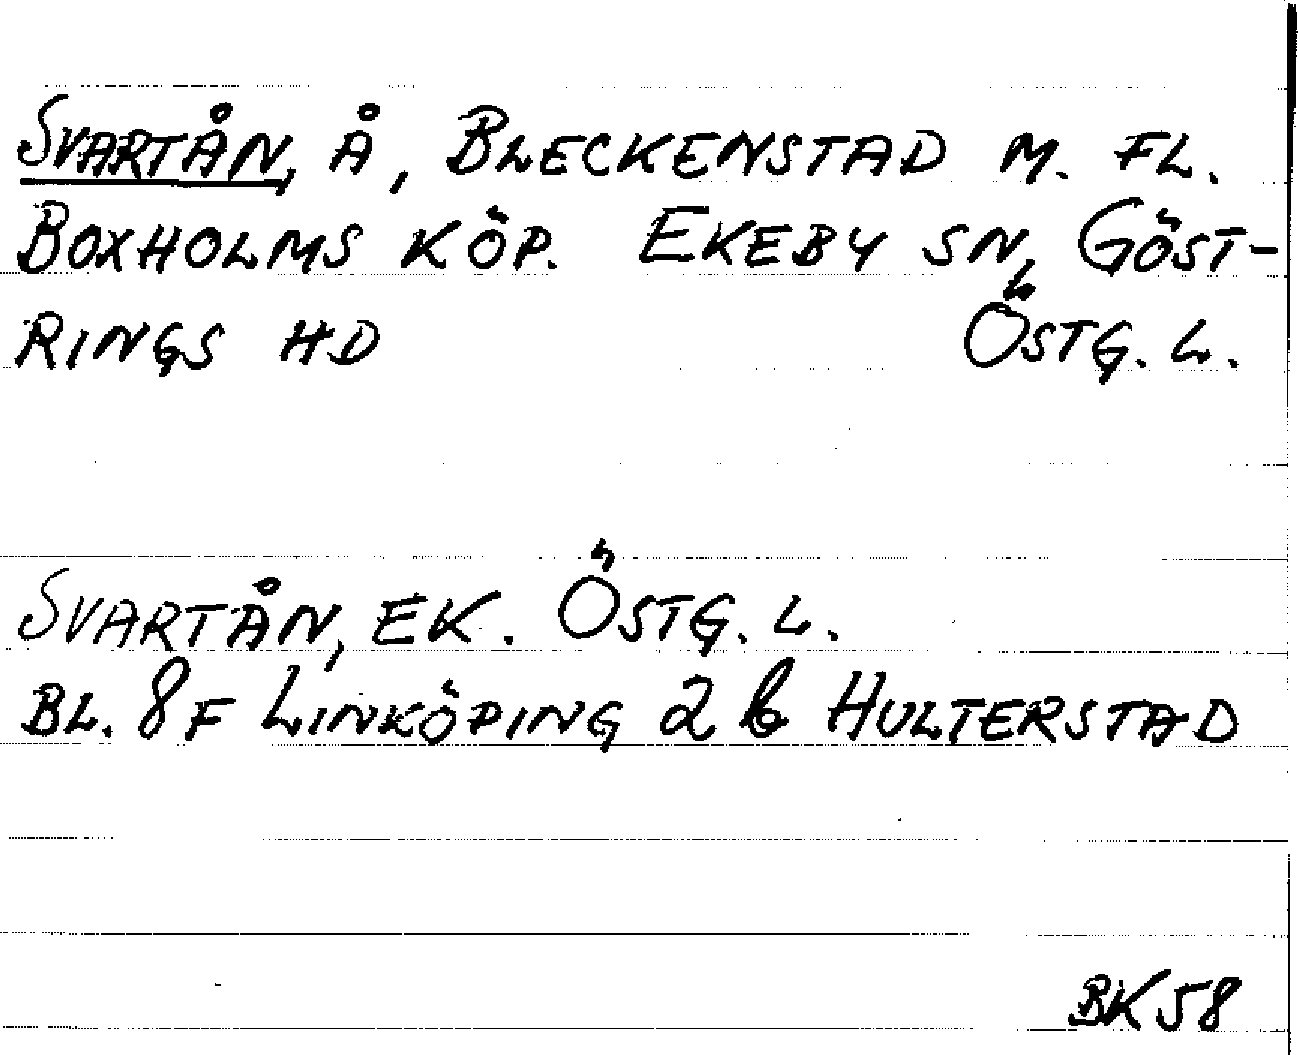 SVARTÅN, Å, BLECKENSTAD M. FL.
BOXHOLMS KÖP. EKEBY SN, GÖST-
RINGS HD ÖSTG. L.
SVARTÅN, EK. ÖSTG. L.
BL. 8F LINKÖPING 2 b HULTERSTAD
BK 58